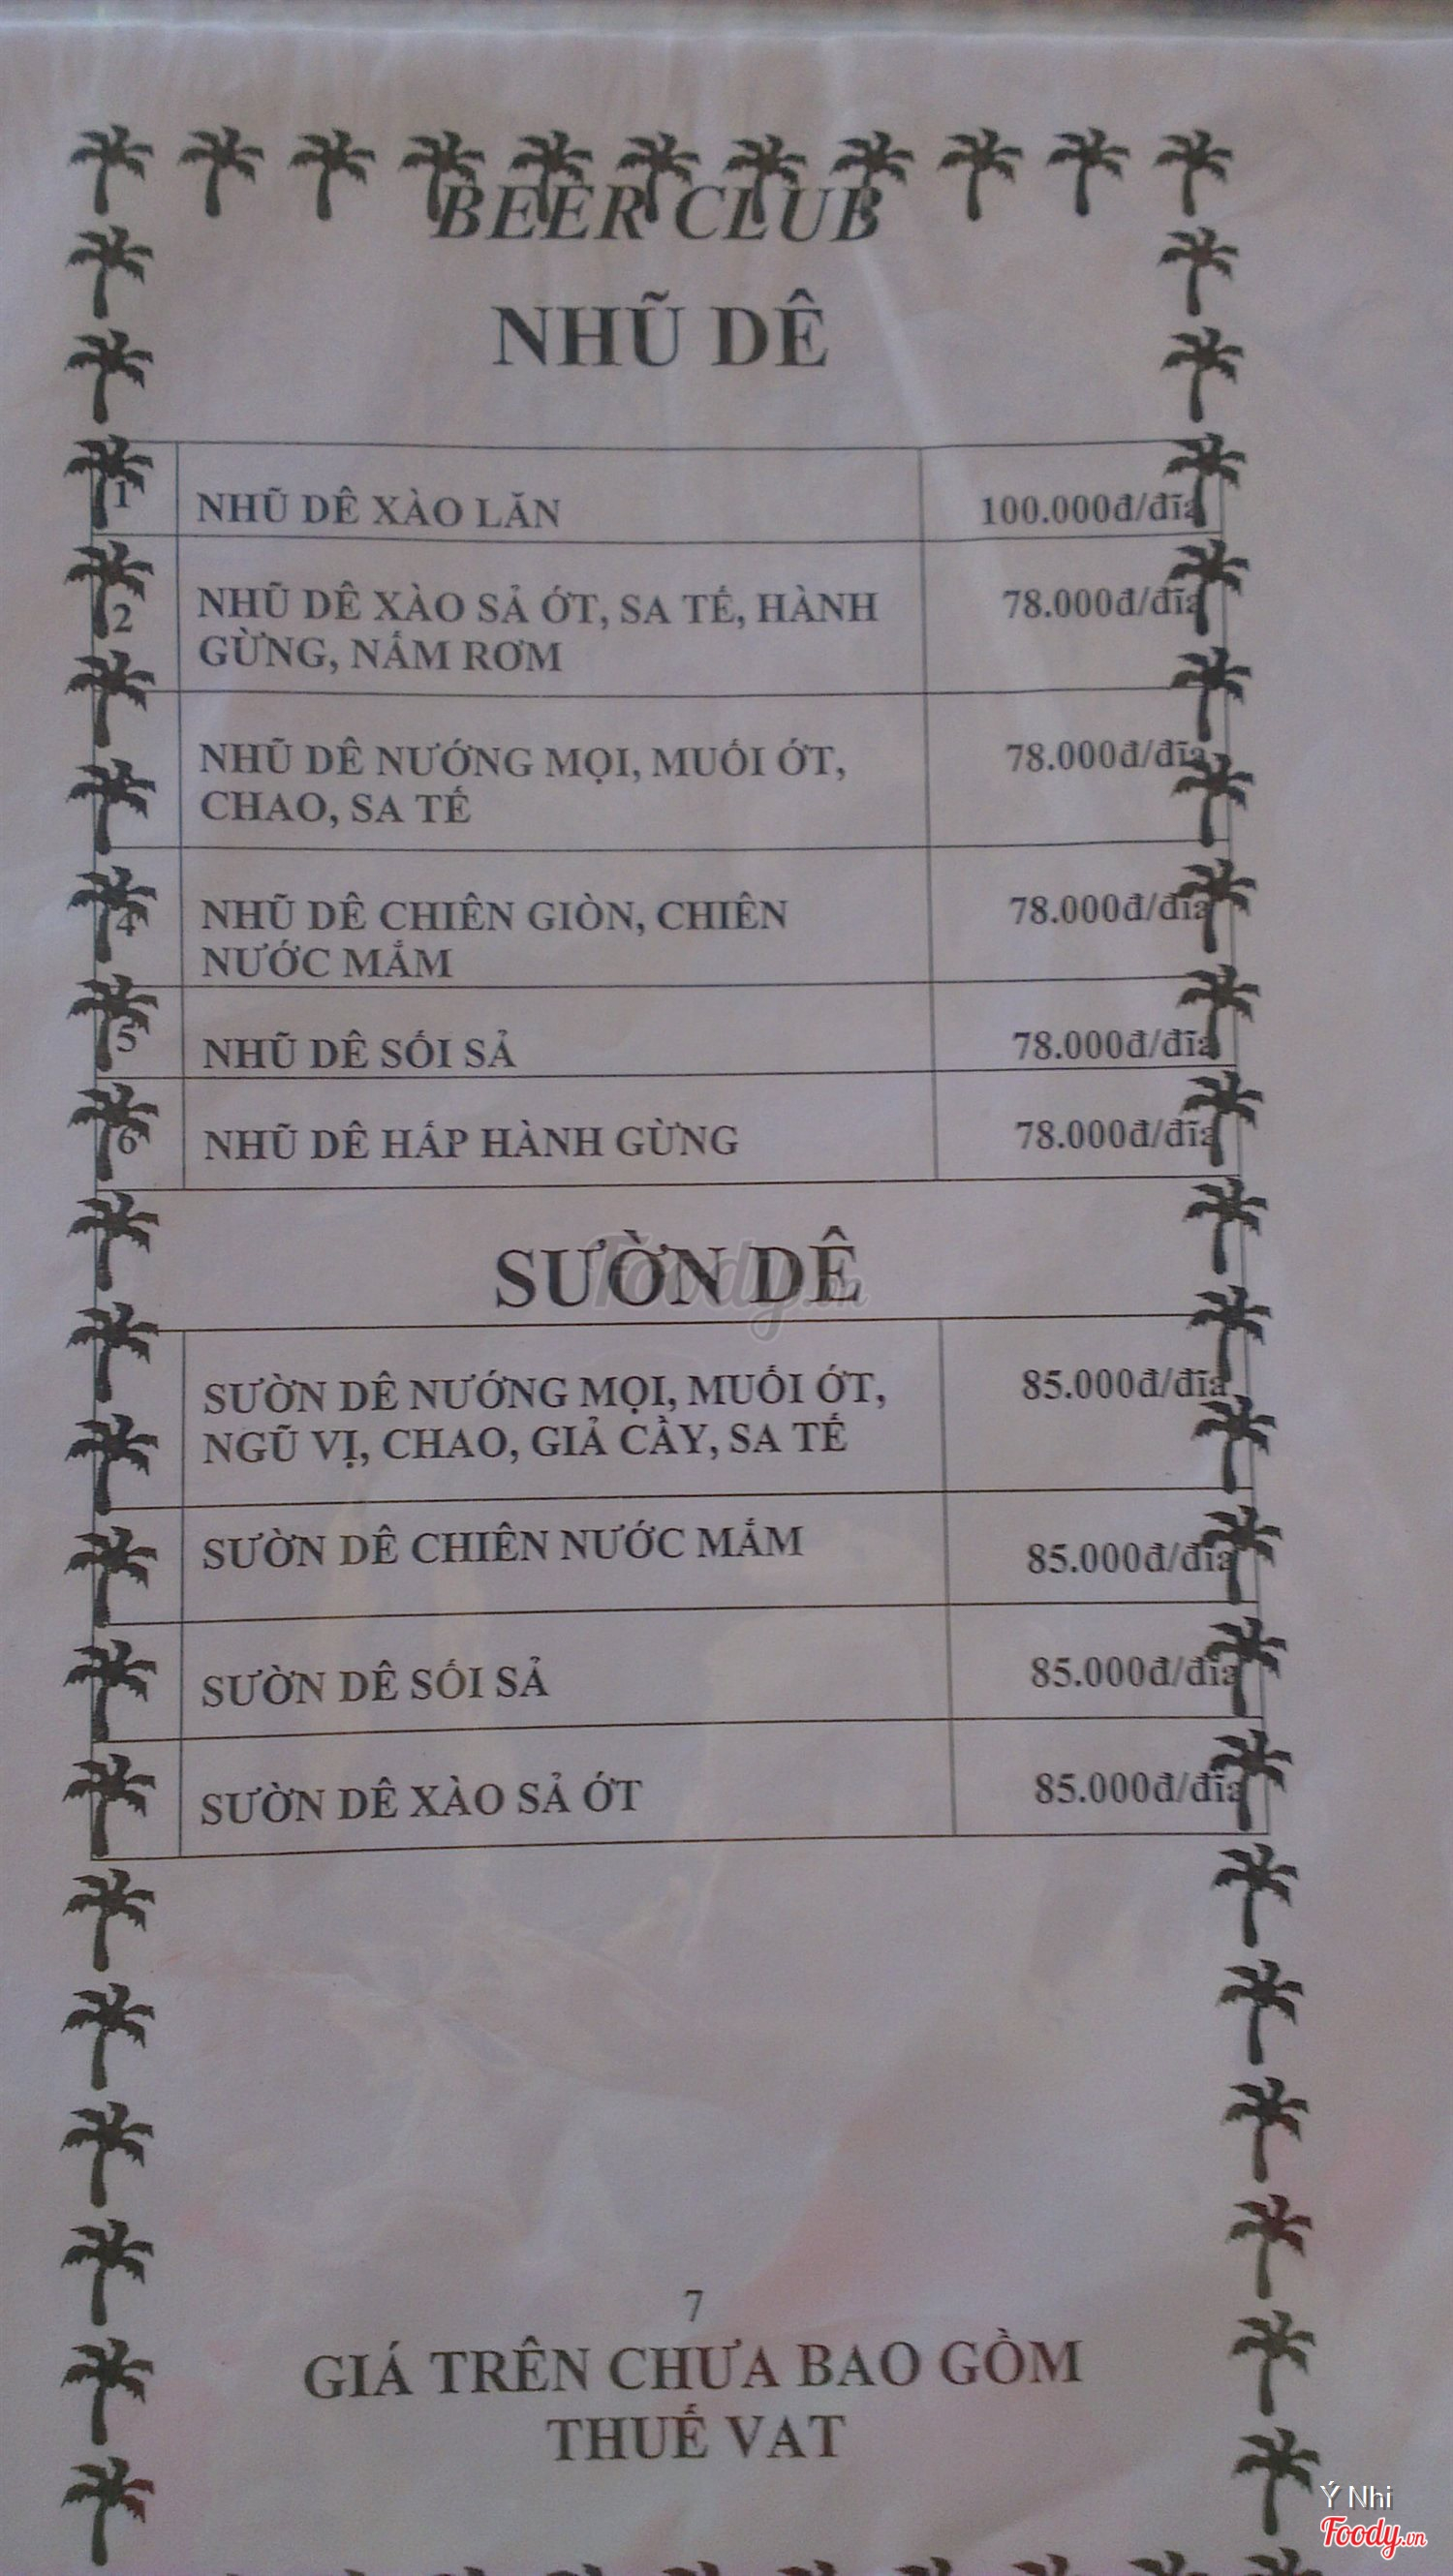 BEER CLUB
NHŨ DÊ
1 NHŨ DÊ XÀO LĂN 100.000đ/đĩa
2 NHŨ DÊ XÀO SẢ ỚT, SA TẾ, HÀNH 78.000đ/đĩa
GỪNG, NẤM RƠM
NHŨ DÊ NƯỚNG MỌI, MUỐI ỚT, 78.000đ/đĩa
CHAO, SA TẾ
4 NHŨ DÊ CHIÊN GIÒN, CHIÊN 78.000đ/đĩa
NƯỚC MẮM
5 NHŨ DÊ SỐI SẢ 78.000đ/đĩa
6 NHŨ DÊ HẤP HÀNH GỪNG 78.000đ/đĩa
SƯỜN DÊ
Foody.vn
SƯỜN DÊ NƯỚNG MỌI, MUỐI ỚT, 85.000đ/đĩa
NGŨ VỊ, CHAO, GIẢ CẦY, SA TẾ
SƯỜN DÊ CHIÊN NƯỚC MẮM 85.000đ/đĩa
SƯỜN DÊ SỐI SẢ 85.000đ/đĩa
SƯỜN DÊ XÀO SẢ ỚT 85.000đ/đĩa
7
GIÁ TRÊN CHƯA BAO GỒM
THUẾ VAT
Ý Nhi
Foody.vn